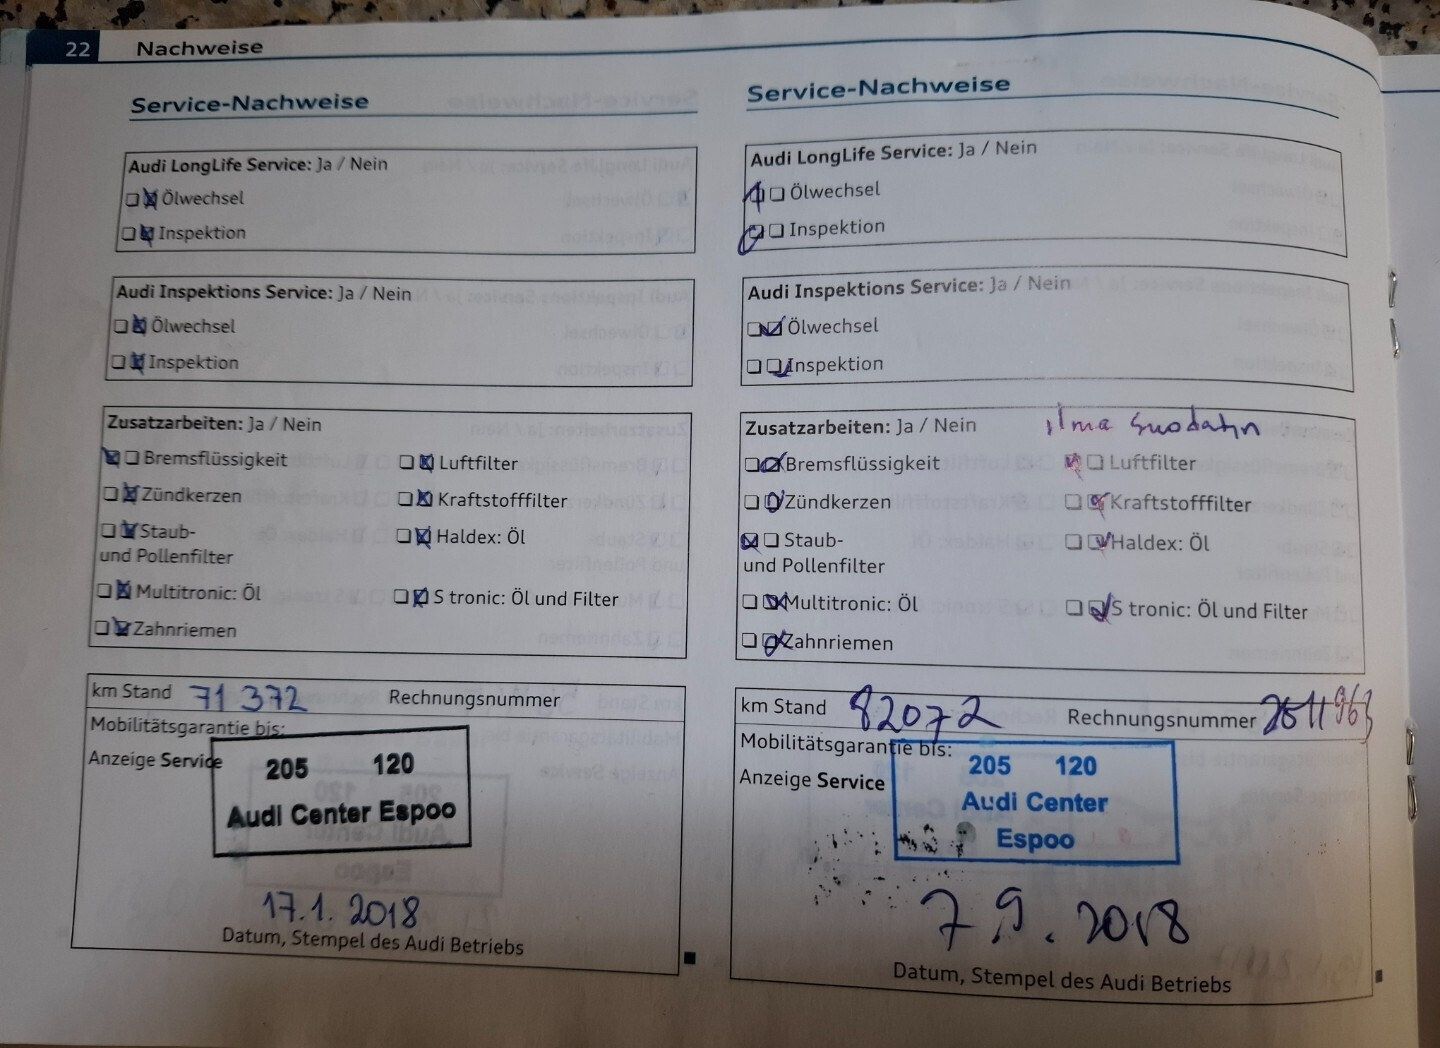 22 Nachweise
Service-Nachweise
Audi LongLife Service: Ja / Nein
Ölwechsel
Inspektion
Audi Inspektions Service: Ja / Nein
Ölwechsel
Inspektion
Zusatzarbeiten: Ja / Nein
Bremsflüssigkeit Luftfilter
Zündkerzen Kraftstofffilter
Staub- Haldex: Öl
und Pollenfilter
Multitronic: Öl S tronic: Öl und Filter
Zahnriemen
km Stand 71 372 Rechnungsnummer
Mobilitätsgarantie bis:
Anzeige Service
205 120
Audi Center Espoo
17.1. 2018
Datum, Stempel des Audi Betriebs
Service-Nachweise
Audi LongLife Service: Ja / Nein
Ölwechsel
Inspektion
Audi Inspektions Service: Ja / Nein
Ölwechsel
Inspektion
Zusatzarbeiten: Ja / Nein ilma suodatin
Bremsflüssigkeit Luftfilter
Zündkerzen Kraftstofffilter
Staub- Haldex: Öl
und Pollenfilter
Multitronic: Öl S tronic: Öl und Filter
Zahnriemen
km Stand 82072 Rechnungsnummer 2611963
Mobilitätsgarantie bis:
Anzeige Service
205 120
Audi Center
Espoo
7.9.2018
Datum, Stempel des Audi Betriebs